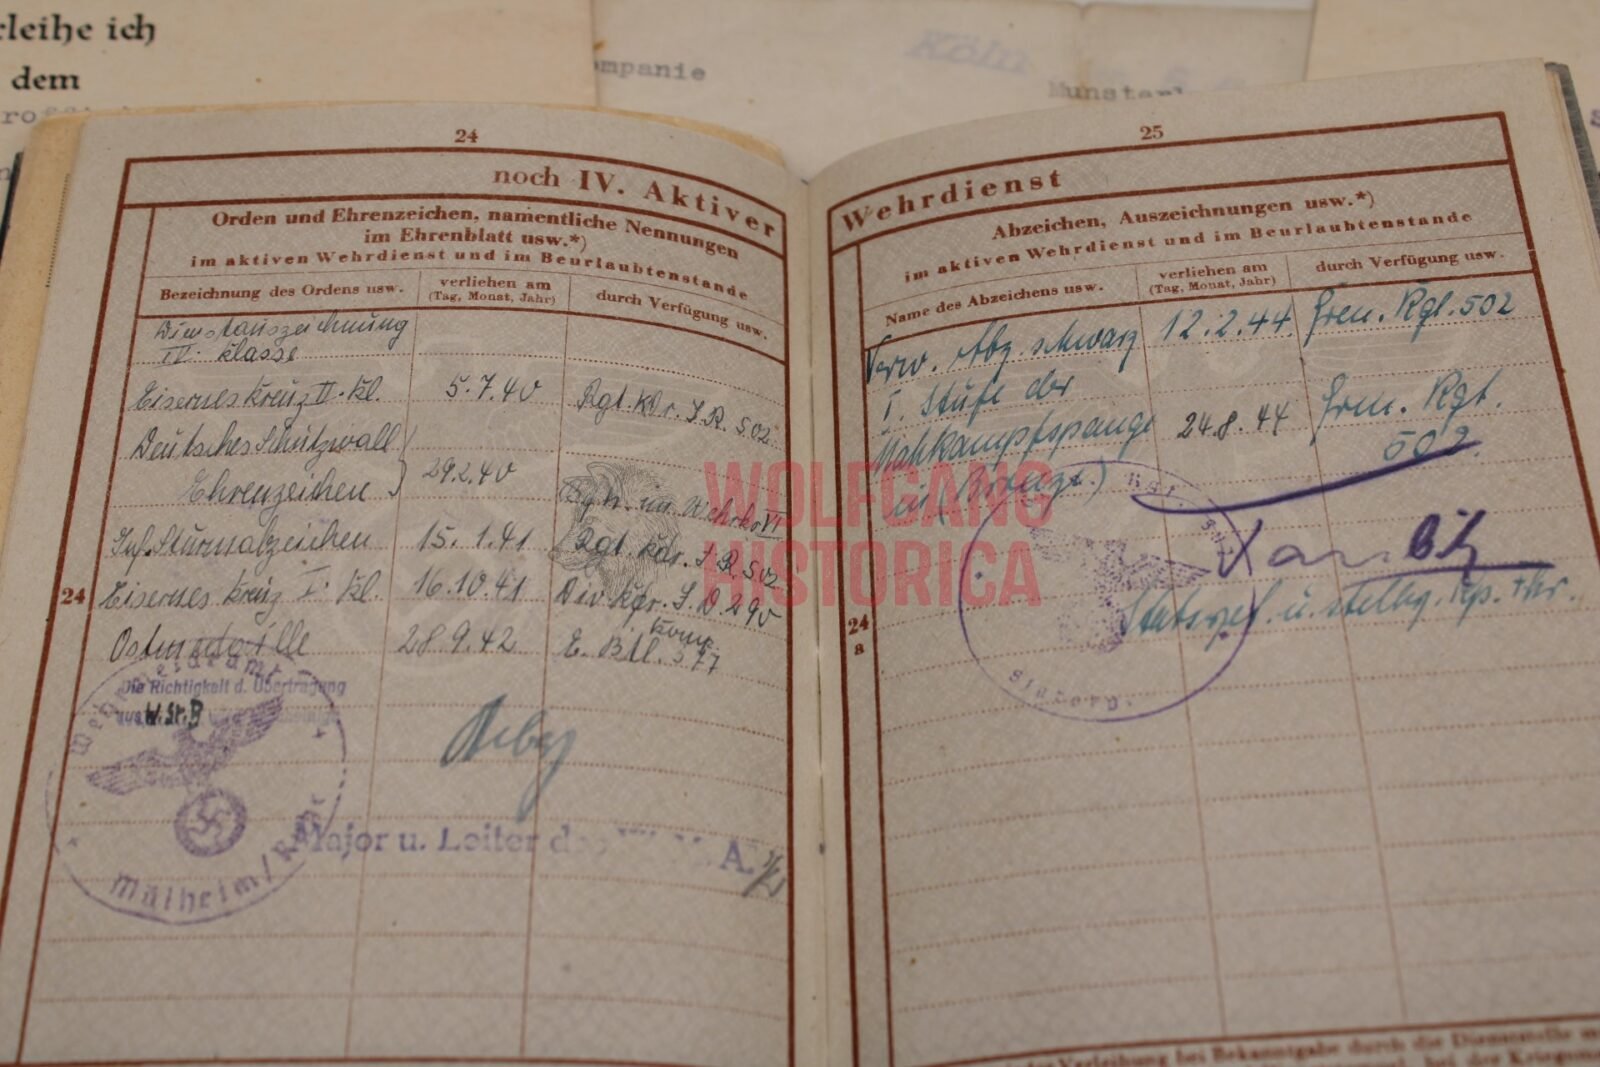 rleihe ich
dem
ompanie
Köln
Munster
24
noch IV. Aktiver
Orden und Ehrenzeichen, namentliche Nennungen
im Ehrenblatt usw.*)
im aktiven Wehrdienst und im Beurlaubtenstande
Bezeichnung des Ordens usw.
verliehen am
(Tag, Monat, Jahr)
durch Verfügung usw.
Dienstauszeichnung
IV. Klasse
Eisernes Kreuz II. Kl. 5.7.40 Rgt. Kdr. I.R. 502
Deutsches Schutzwall
Ehrenzeichen 29.2.40
Wehrko VI
Inf. Sturmabzeichen 15.1.41 Rgt. Kdr. I.R. 502
24 Eisernes Kreuz I. Kl. 16.10.41 Div. Kdr. I.D. 290
Ostmedaille 28.9.42 Btl. 577
Die Richtigkeit d. Übertragung
aus W.St.B
Mülheim/Ruhr
Major u. Leiter
25
Wehrdienst
Abzeichen, Auszeichnungen usw.*)
im aktiven Wehrdienst und im Beurlaubtenstande
Name des Abzeichens usw.
verliehen am
(Tag, Monat, Jahr)
durch Verfügung usw.
Verw. Abz. schwarz 12.2.44 Gren. Rgt. 502
I. Stufe der
Nahkampfspange 24.8.44 Gren. Rgt.
in (Bronze) 502
24
a
WOLFGANG
HISTORICA